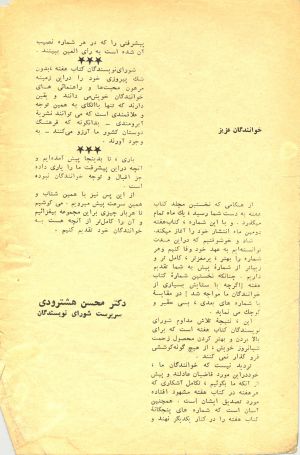 خوانندگان عزیز
از هنگامی که نخستین مجله کتاب
هفته به دست شما رسید ، یک ماه تمام
میگذرد ، و با این شماره ، کتاب‌هفته
دومین ماه انتشار خود را آغاز میکند.
شاد و خوشنودیم که دراین مدت
توانسته‌ایم به عهد خود وفا کنیم وهر
شماره را بهتر ، پرمغزتر ، کامل تر و
زیباتر از شمارهٔ پیش به شما تقدیم
داریم . چنانکه نخستین شمارهٔ کتاب
هفته [اگرچه با ستایش بسیاری از
خوانندگان ما مواجه شد] در مقایسه
با شماره های بعدی ، بسی حقیر و
کوچک می نماید .
این ، نتیجه تلاش مداوم شورای
نویسندگان کتاب هفته است که برای
بالا بردن و بهتر کردن محصول زحمت
شبانروز خویش ، از هیچ گونه کوششی
فرو گذار نمی کنند .
تردید نیست که خوانندگان ما ،
خود دراین مورد قاضیان عادلند و پیش
از آنکه ما بگوئیم ، تکامل آشکاری که
هرهفته در کتاب هفته مشهود افتاده
مورد تصدیق ایشان است . همچنین
آسان است که شماره های پنجگانهٔ
کتاب هفته را در کنار یکدیگر نهند و
پیشرفتی را که در هر شماره نصیب
آن شده است به رای العین ببینند .
★★★
شورای‌نویسندگان کتاب هفته ، بدون
شک پیروزی خود را دراین زمینه
مرهون محبت‌ها و راهنمائی های
خوانندگان خویش‌می دانند و یقین
دارند که تنها باتکای به همین توجه
و علاقمندی است که می توانند نشریهٔ
آبرومندی - بدانگونه که فرهنگ
دوستان کشور ما آرزو می‌کنند - به
وجود آورند .
★★★
باری ، تا بدینجا پیش آمده‌ایم و
آنچه دراین پیشرفت ما را یاری داده
جز اقبال و توجه خوانندگان نبوده
است
از این پس نیز با همین شتاب و
همین سرعت پیش میرویم . می کوشیم
تا هربار چیزی براین مجموعه بیفزائیم
و آن را کامل‌تر از آنچه هست به
خوانندگان خود تقدیم کنیم .
دکتر محسن هشترودی
سرپرست شورای نویسندگان